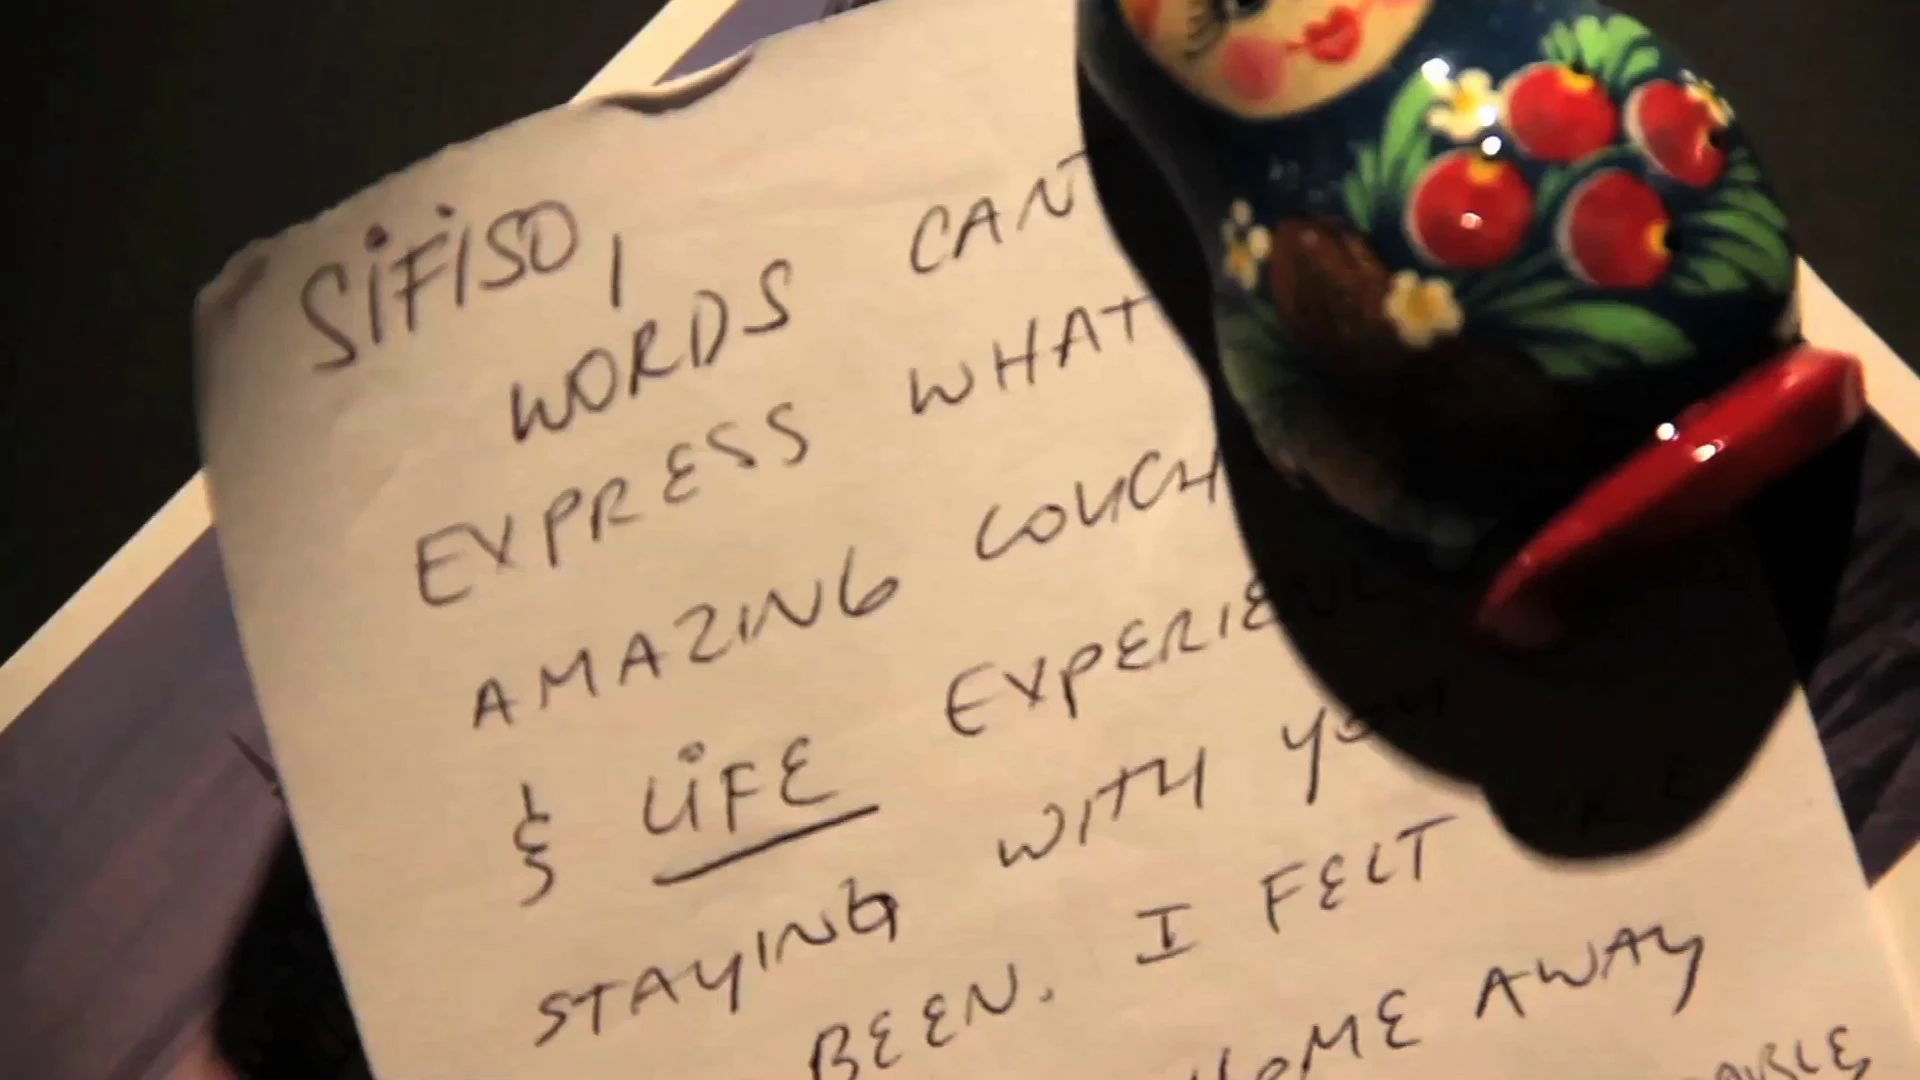 SIFISO,
WORDS CANT
EXPRESS WHAT
AMAZING COUCH
& LIFE EXPERIENC
STAYING WITH YOU
BEEN. I FELT
HOME AWAY